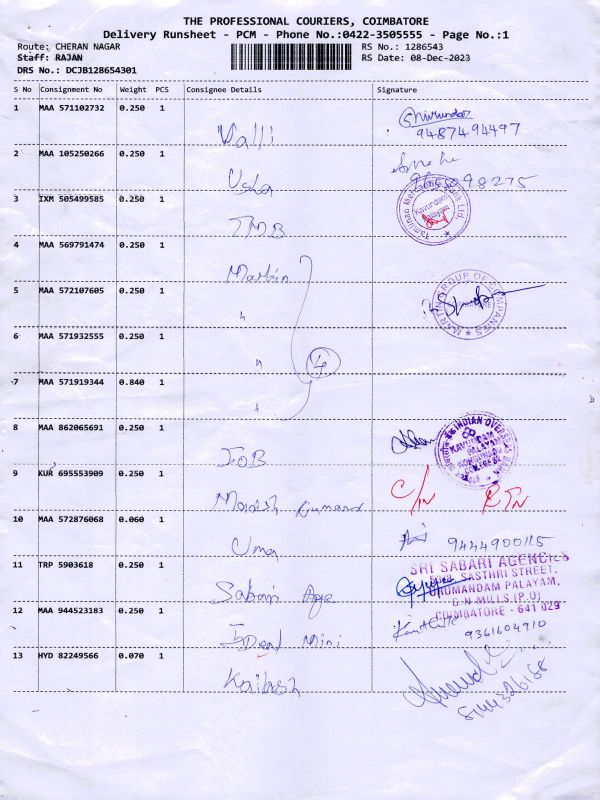 THE PROFESSIONAL COURIERS, COIMBATORE
Delivery Runsheet - PCM - Phone No.:0422-3505555 - Page No.:1
Route: CHERAN NAGAR
RS No.: 1286543
Staff: RAJAN
RS Date: 08-Dec-2023
DRS No.: DCJB128654301
S No Consignment No Weight PCS Consignee Details Signature
1 MAA 571102732 0.250 1
Valli
9487494497
2 MAA 105250266 0.250 1
Usha
98275
3 IXM 505499585 0.250 1
TMB
Kavundam
palayam
4 MAA 569791474 0.250 1
Martin
MARTIN GROUP OF COMPANIES
5 MAA 572107605 0.250 1
"
6 MAA 571932555 0.250 1
"
4
7 MAA 571919344 0.840 1
"
8 MAA 862065691 0.250 1
IOB
INDIAN OVERSEAS
KAVUNDAM
PALAYAM
9 KUR 695553909 0.250 1
Manish Kumar
C/N RTN
10 MAA 572876068 0.060 1
Uma
9444900115
11 TRP 5903618 0.250 1
Sabari Age
SRI SABARI AGENCIES
SASTHRI STREET,
URUMANDAM PALAYAM,
G.N MILLS (P.O)
COIMBATORE - 641 029
12 MAA 944523183 0.250 1
Mini
9361604910
13 HYD 82249566 0.070 1
Kailash
8144326188